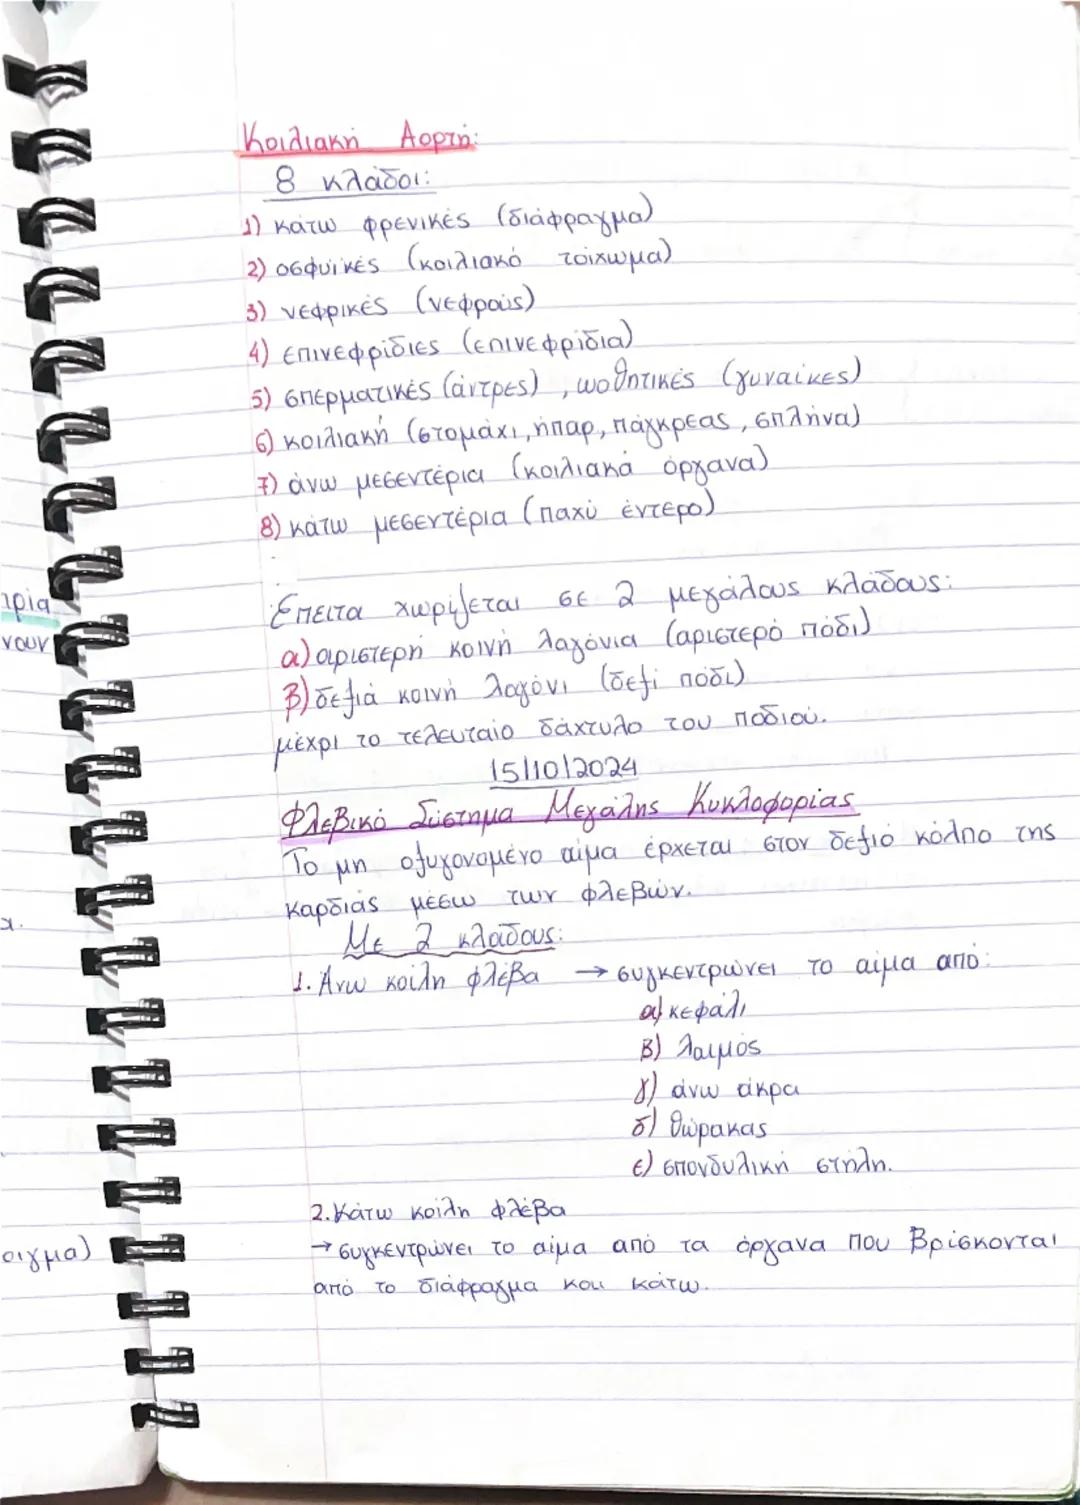 Κοιλιακή Αορτή:
8 κλάδοι:
1) κάτω φρενικές (διάφραγμα)
2) οσφυϊκές (κοιλιακό τοίχωμα)
3) νεφρικές (νεφρούς)
4) επινεφρίδιες (επινεφρίδια)
5) σπερματικές (άντρες), ωοθητικές (γυναίκες)
6) κοιλιακή (στομάχι, ήπαρ, πάγκρεας, σπλήνα)
7) άνω μεσεντέρια (κοιλιακά όργανα)
8) κάτω μεσεντέρια (παχύ έντερο)
Έπειτα χωρίζεται σε 2 μεγάλους κλάδους:
α) αριστερή κοινή λαγόνια (αριστερό πόδι)
β) δεξιά κοινή λαγόνι (δεξί πόδι)
μέχρι το τελευταίο δάχτυλο του ποδιού.
15/10/2024
Φλεβικό Σύστημα Μεγάλης Κυκλοφορίας
Το μη οξυγονομένο αίμα έρχεται στον δεξιό κόλπο της
καρδιάς μέσω των φλεβών.
Με 2 κλάδους:
1. Άνω κοίλη φλέβα → συγκεντρώνει το αίμα από:
α) κεφάλι
β) λαιμός
γ) άνω άκρα
δ) θώρακας
ε) σπονδυλική στήλη.
2. Κάτω κοίλη φλέβα
→ συγκεντρώνει το αίμα από τα όργανα που βρίσκονται
από το διάφραγμα και κάτω.
τρία
νουν
οιγμα)